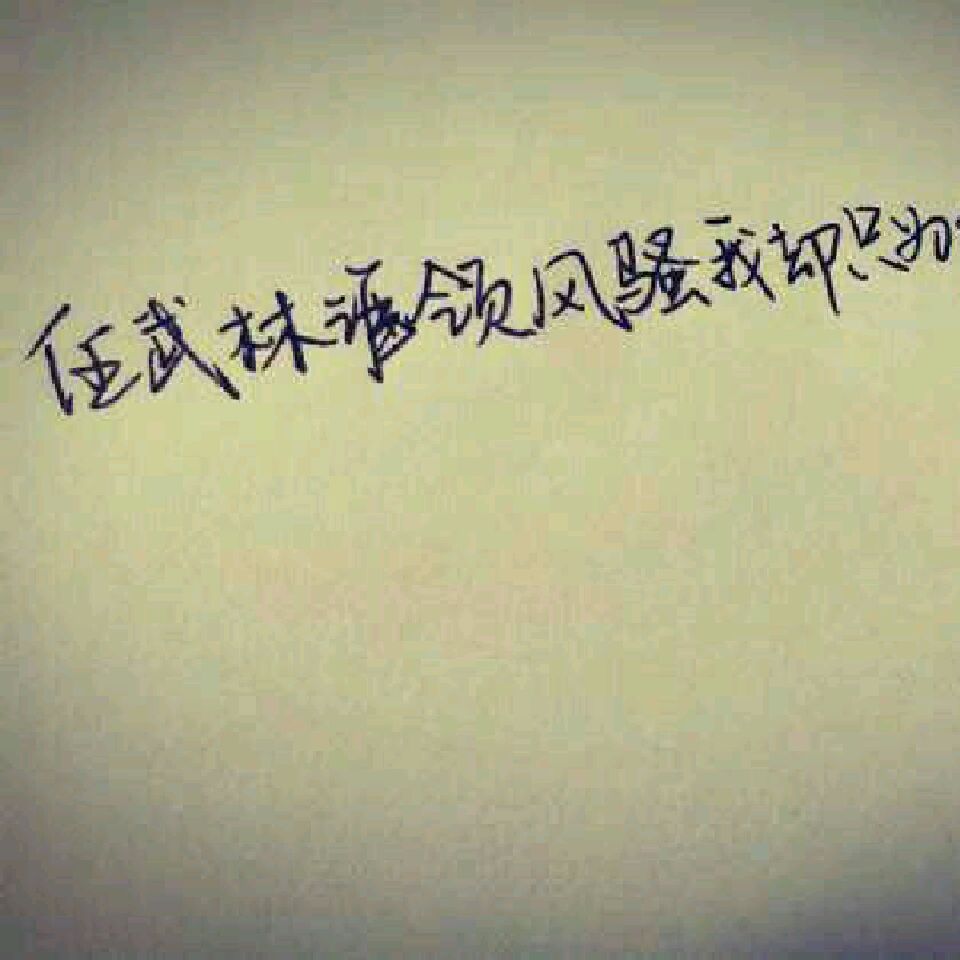 任武林谁领风骚我却只为